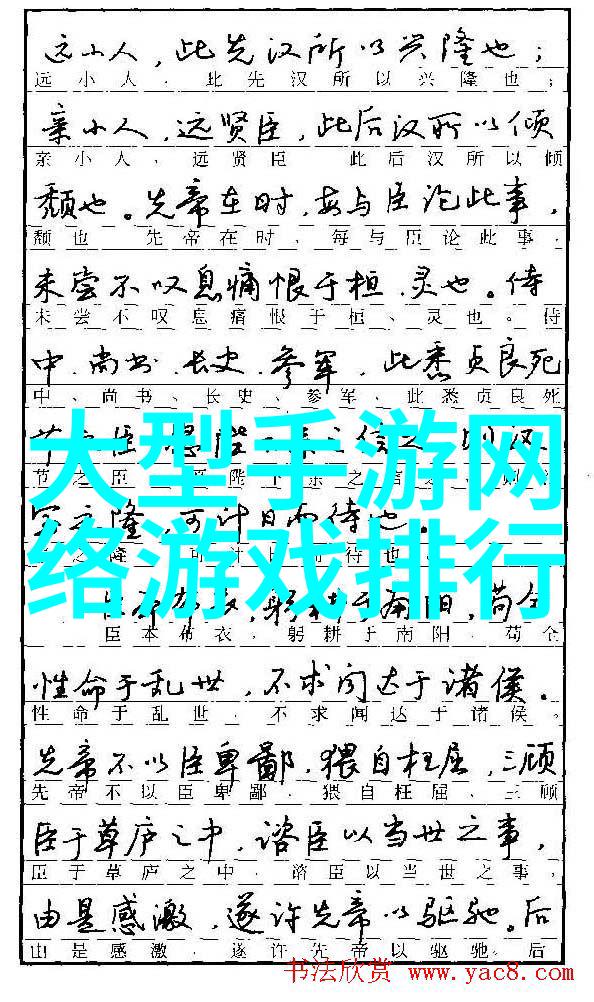 远小人，此先汉所以兴隆也；
远小人，此先汉所以兴隆也；
亲小人，远贤臣，此后汉所以倾
亲小人、远贤臣 此后汉所以倾
颓也。先帝在时，每与臣论此事，
颓也 先帝在时，每与臣论此事，
未尝不叹息痛恨于桓、灵也。侍
未尝不叹息痛恨于桓、灵也。侍
中、尚书、长史、参军，此悉贞良死
中、尚书、长史、参军，此悉贞良死
节 臣
节之臣 陛
大型手游网
之隆，可计日而待也。
之隆 可计日而待也
络游戏排行
臣本布衣，躬耕于南阳，苟全
臣本布衣，躬耕于南阳，苟全
性命于乱世，不求闻达于诸侯。
性命于乱世，不求闻达于诸侯。
先帝不以臣卑鄙，猥自枉屈，三顾
先帝不以臣卑鄙，猥自枉屈、三顾
臣于草庐之中，谘臣以当世之事，
臣于草庐之中，谘臣以当世之事，
由是感激，遂许先帝以驱驰。后
由是感激，遂许先帝以驱驰。后
书法欣赏 www.yac8.com